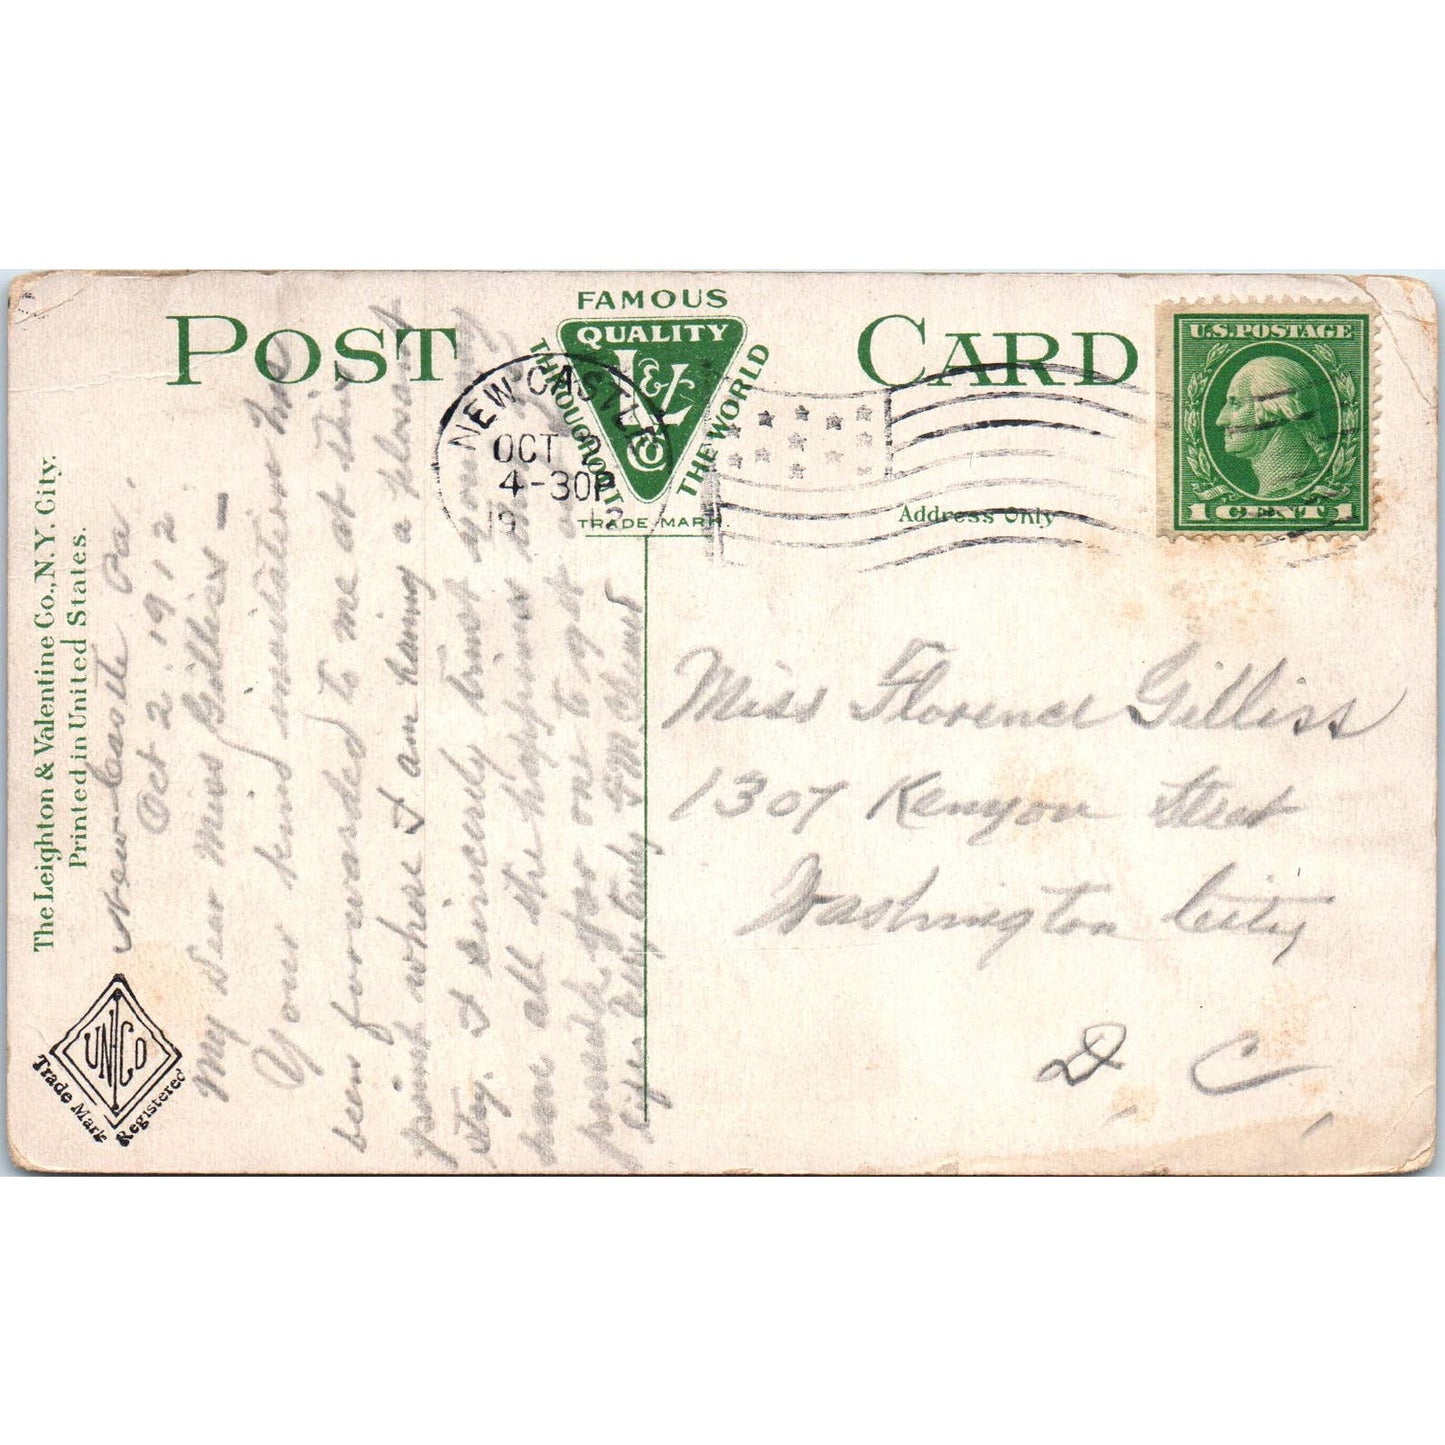 POST CARD
FAMOUS
QUALITY
L & V Co
THROUGHOUT THE WORLD
TRADE MARK.
NEW CASTLE
OCT
4-30P
1912
U.S. POSTAGE
1 CENT 1
Address Only
The Leighton & Valentine Co., N.Y. City.
Printed in United States.
UNCO
Trade Mark Registered
New Castle Pa
Oct 2 1912
My Dear Miss Gilliss —
Your kind invitation has
been forwarded to me at this
point where I am having a pleasant
stay. I sincerely trust you may
have all the happiness
possible for one to get
Very truly
Miss Florence Gilliss
1307 Kenyon Street
Washington City
D. C.